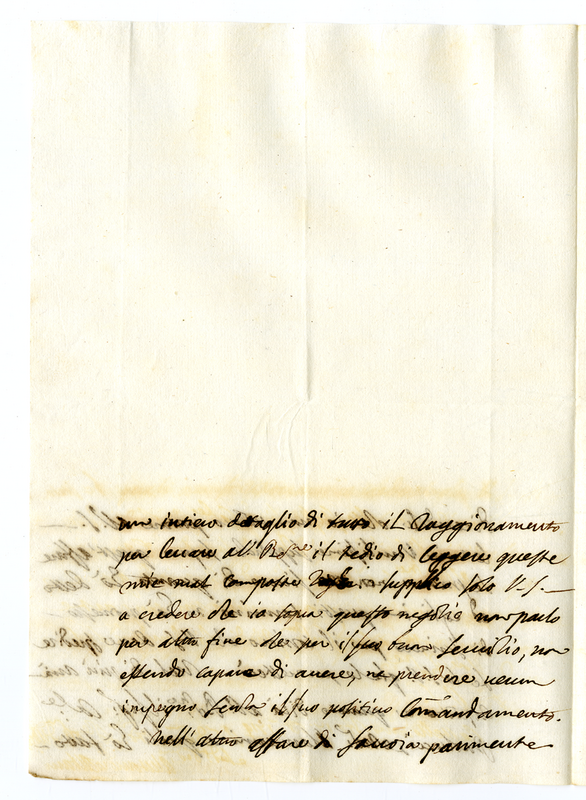 un intiero detaglio di tutto il Raggionamento
per levare all' il tedio di leggere queste
mie mal composte supplico solo V. S.
a credere che io sopra questo negotio non parlo
per altro fine che per il suo buon servitio, non
essendo capace di avere, ne prendere verun
impegno senza il suo positivo Comãndamento.
Nell'altro affare di Savoia parimente